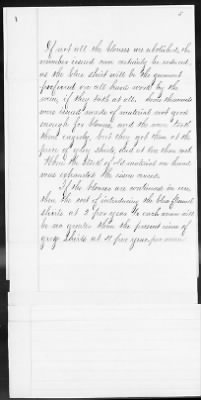 5
If not all the blouses are abolished, the
number issued can certainly be reduced,
as the blue shirt will be the garment
preferred on all hard work by the
men, if they talk at all. Some thousands
were issued made of material not good
enough for blouses, and the men took
them eagerly, but they got them at the
price of grey shirts, and at less than cost.
When the stock of old material on hand
was exhausted the issue ceased.
If the blouses are continued in use,
then the cost of introducing the blue flannel
shirts at 2 per year to each man will
be no greater than the present issue of
grey shirts at per year per man.